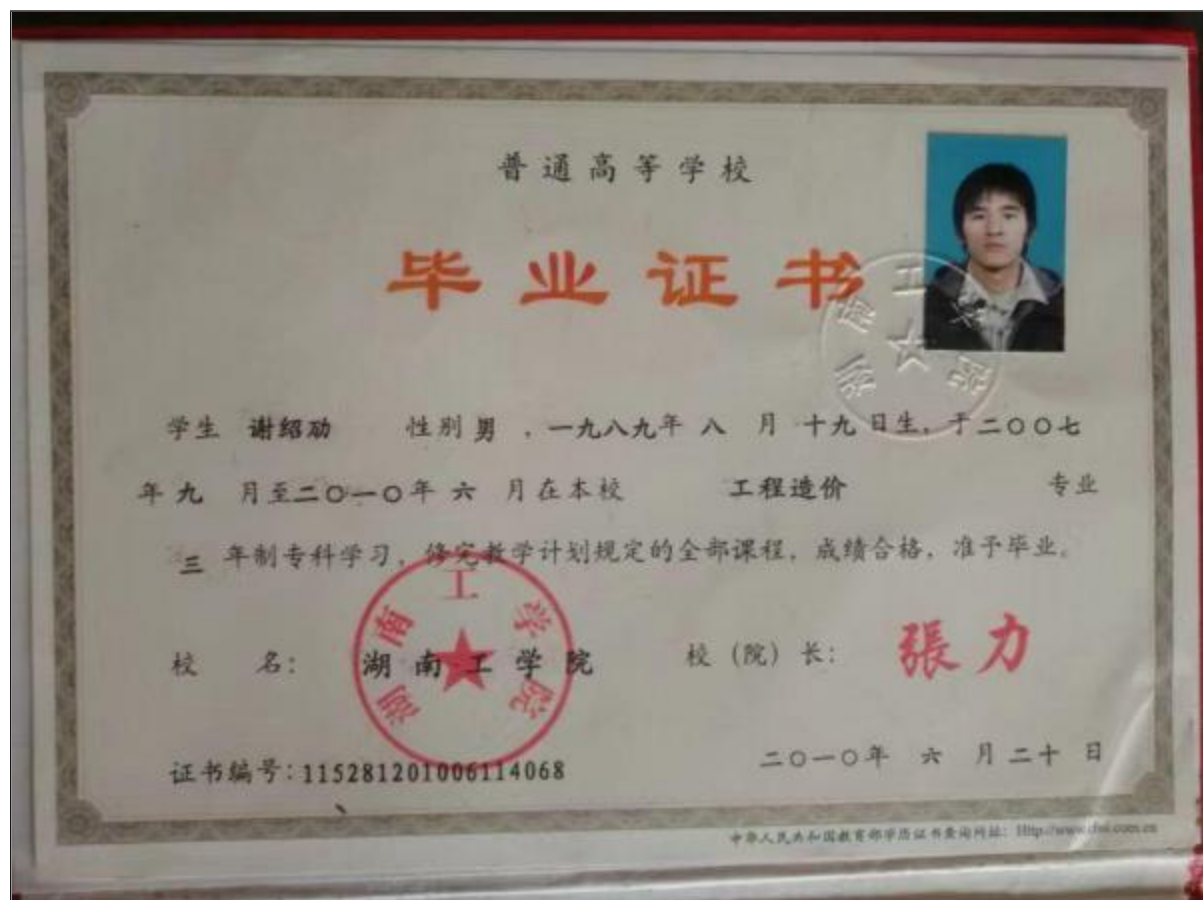 普通高等学校
毕业证书
学生 谢绍劢 性别 男 ，一九八九年 八 月 十九 日生，于二〇〇七
年 九 月至二〇一〇年 六 月在本校 工程造价 专业
三 年制专科学习，修完教学计划规定的全部课程，成绩合格，准予毕业。
校 名： 湖南工学院 校（院）长： 張力
湖南工学院
湖南工学院
证书编号：115281201006114068 二〇一〇年 六 月二十 日
中华人民共和国教育部学历证书查询网址：Http://www.chsi.com.cn